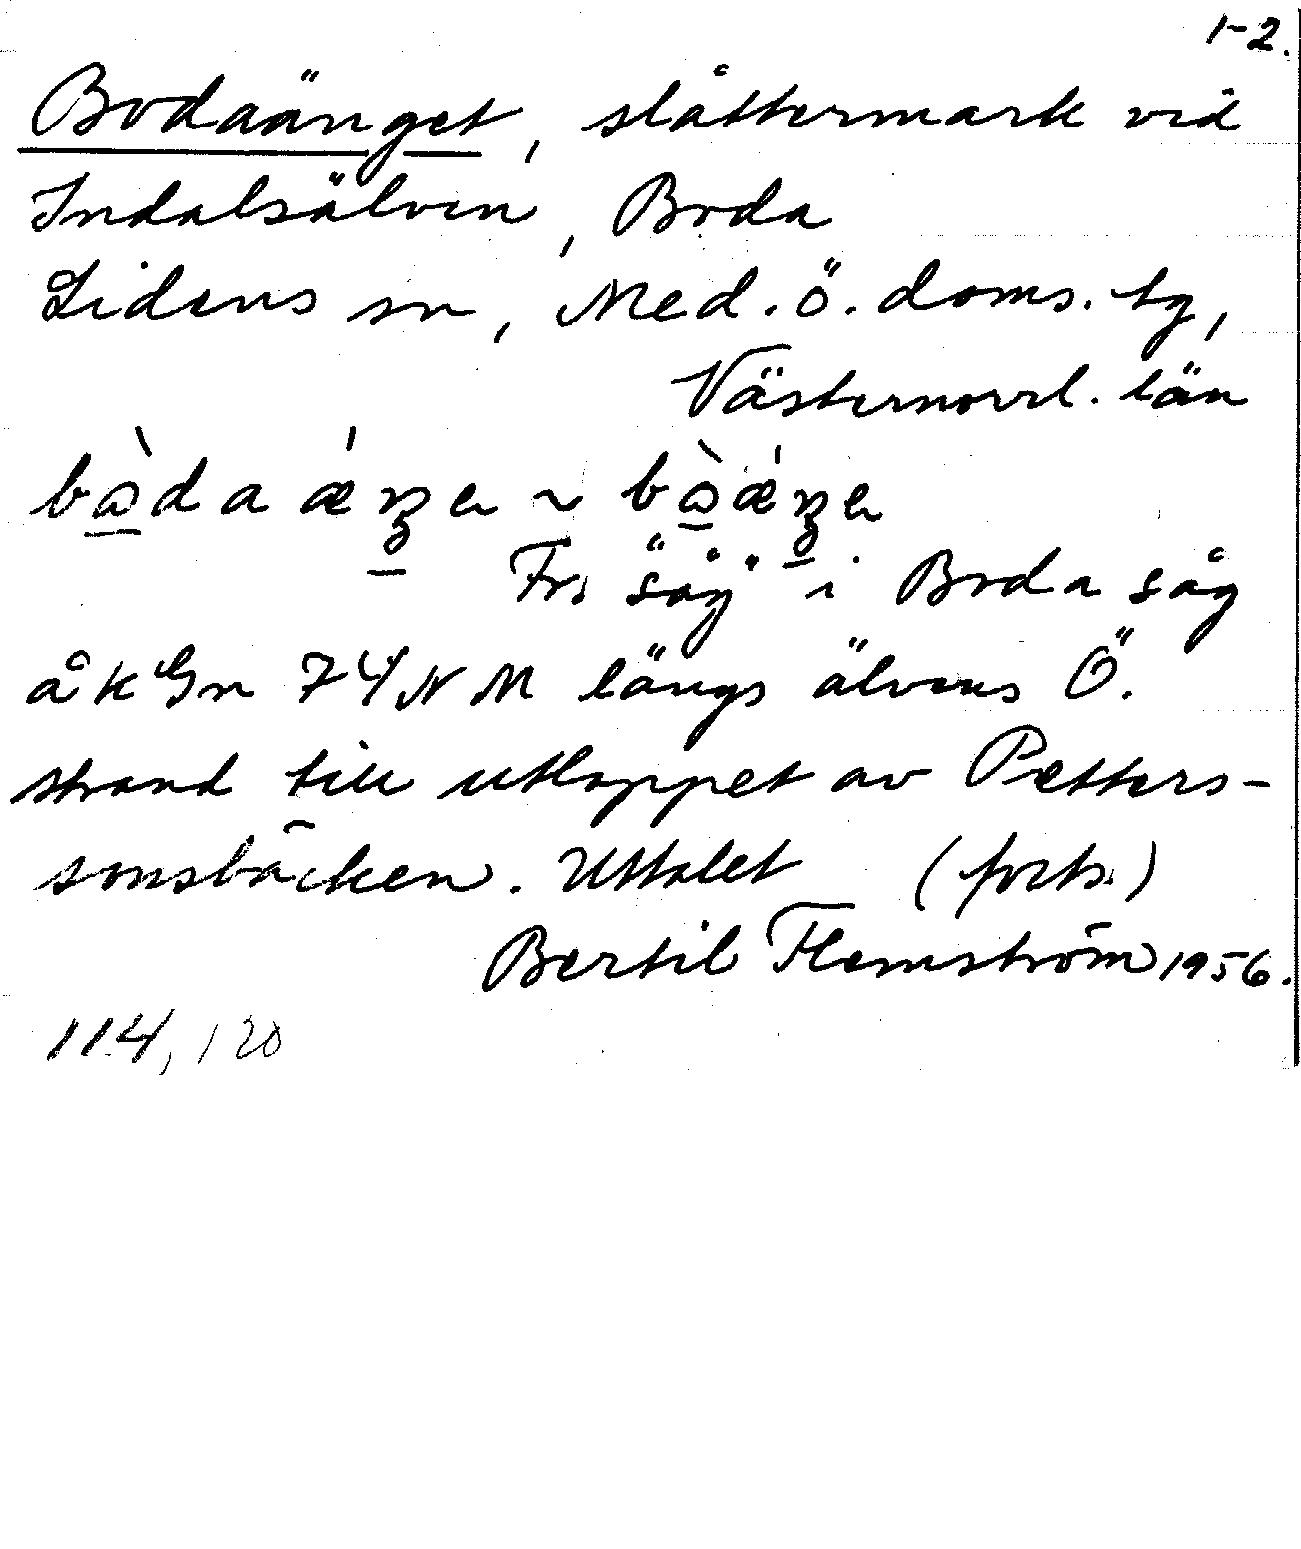 1-2.
Bodaänget, slåttermark vid
Indalsälven, Boda
Lidens sn, Med. Ö. doms. tg,
Västernorrl. län
Fr. "såg" i Boda såg
åk längs älvens Ö.
strand till utloppet av Petters-
sonsbäcken. Uttalet (forts.)
Bertil Flemström 1956.
114, 120